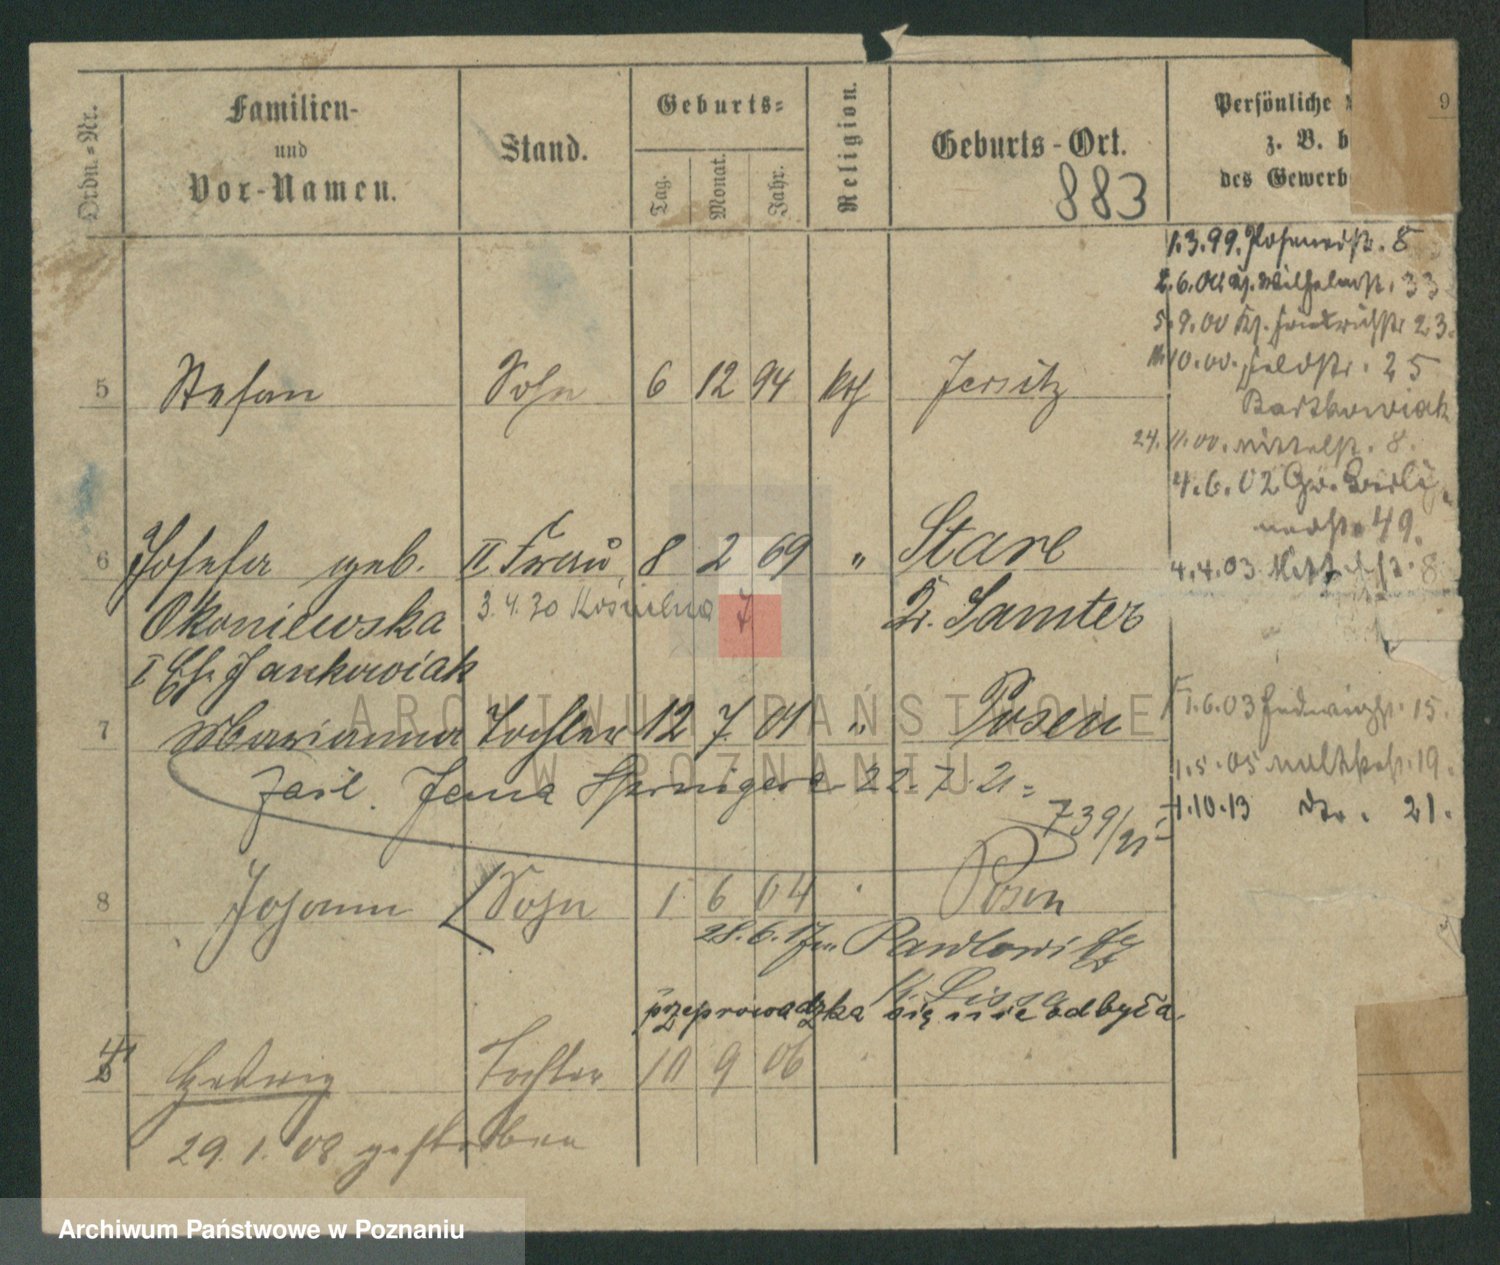 Ordn.-Nr.
Familien-
und
Vor-Namen.
Stand.
Geburts-
Tag.
Monat.
Jahr.
Religion.
Geburts-Ort.
883
Persönliche
z. B. b
des Gewerb
9
1.3.99. Posenerstr. 8
2.6.00 Kl. Wilhelmstr. 33
5.9.00 Kl. Friedrichstr 23.
10.00. Feldstr. 25
Bartkowiak
5 Stefan Sohn 6 12 94 kth Jersitz
24.11.00. Mittelstr. 8.
4.6.02 Gr. Berli
nerstr. 49.
6 Josefa geb. II Frau, 8 2 69 " Stare
4.4.03 8
Okoniewska 3.4.30 Kościelna 7 Kr. Samter
I Eh. Jankowiak
7 Marianna Tochter 12 7. 01 " Posen
1.6.03 Hedwigstr. 15.
1.5.05 19.
22.7.21.
1.10.13 dto. 21.
739/21
8 Johann Sohn 1 6 04 Posen
28.6.17 Pawlowitz
K. Lissa
przeprowadzka się nie odbyła.
Hedwig Tochter 10 9 06
29.1.08 gestorben
ARCHIWUM PAŃSTWOWE
W POZNANIU
Archiwum Państwowe w Poznaniu